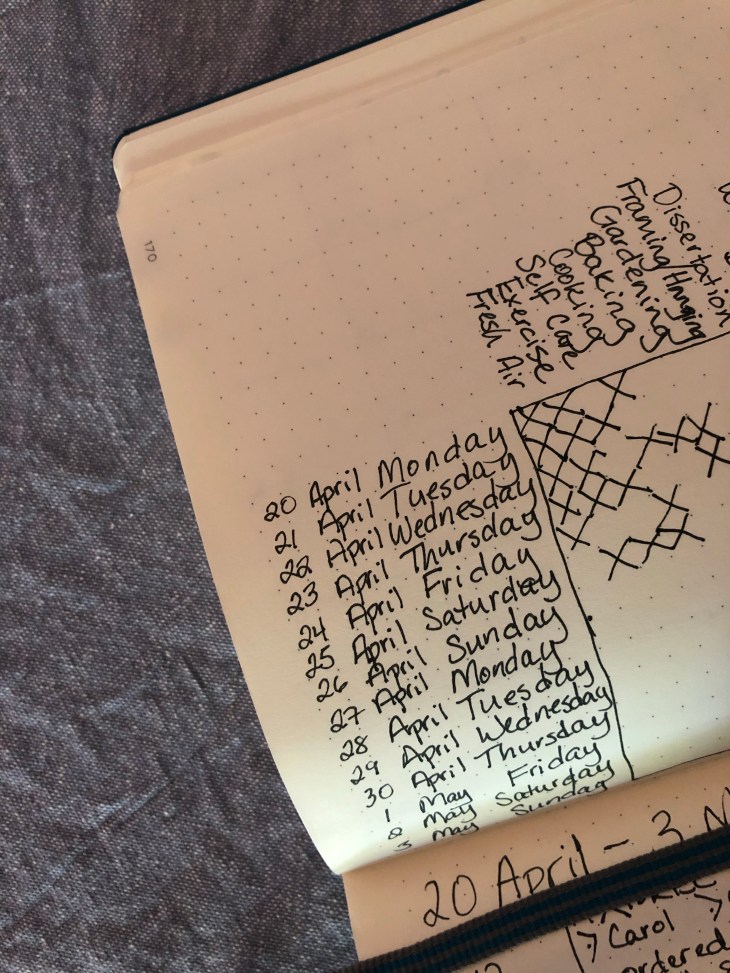 170
Dissertation
Framing/Hanging
Gardening
Baking
Cooking
Self Care
Exercise
Fresh Air
20 April Monday
21 April Tuesday
22 April Wednesday
23 April Thursday
24 April Friday
25 April Saturday
26 April Sunday
27 April Monday
28 April Tuesday
29 April Wednesday
30 April Thursday
1 May Friday
2 May Saturday
3 May Sunday
20 April - 3
> Carol >